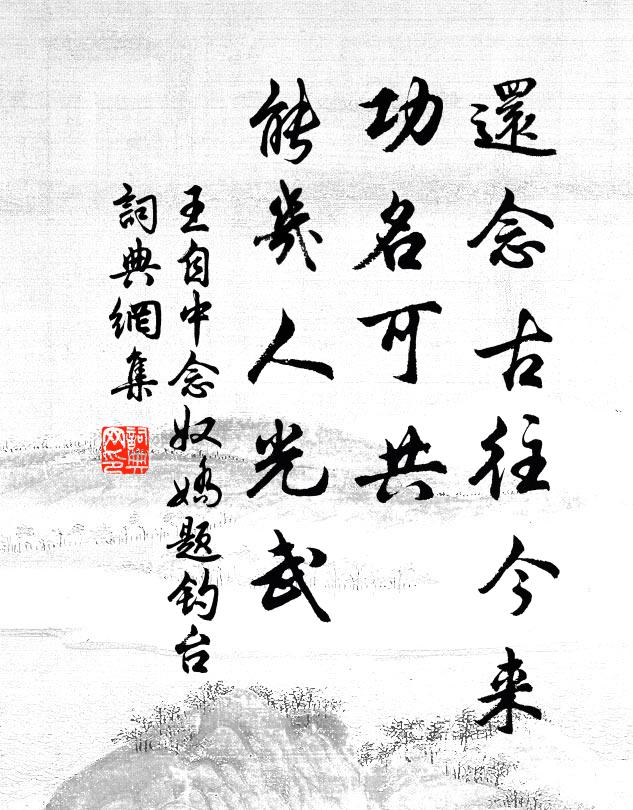 還念古往今来
功名可共
能幾人光武
王自中念奴嬌題钓台
詞典網集
詞典
网印